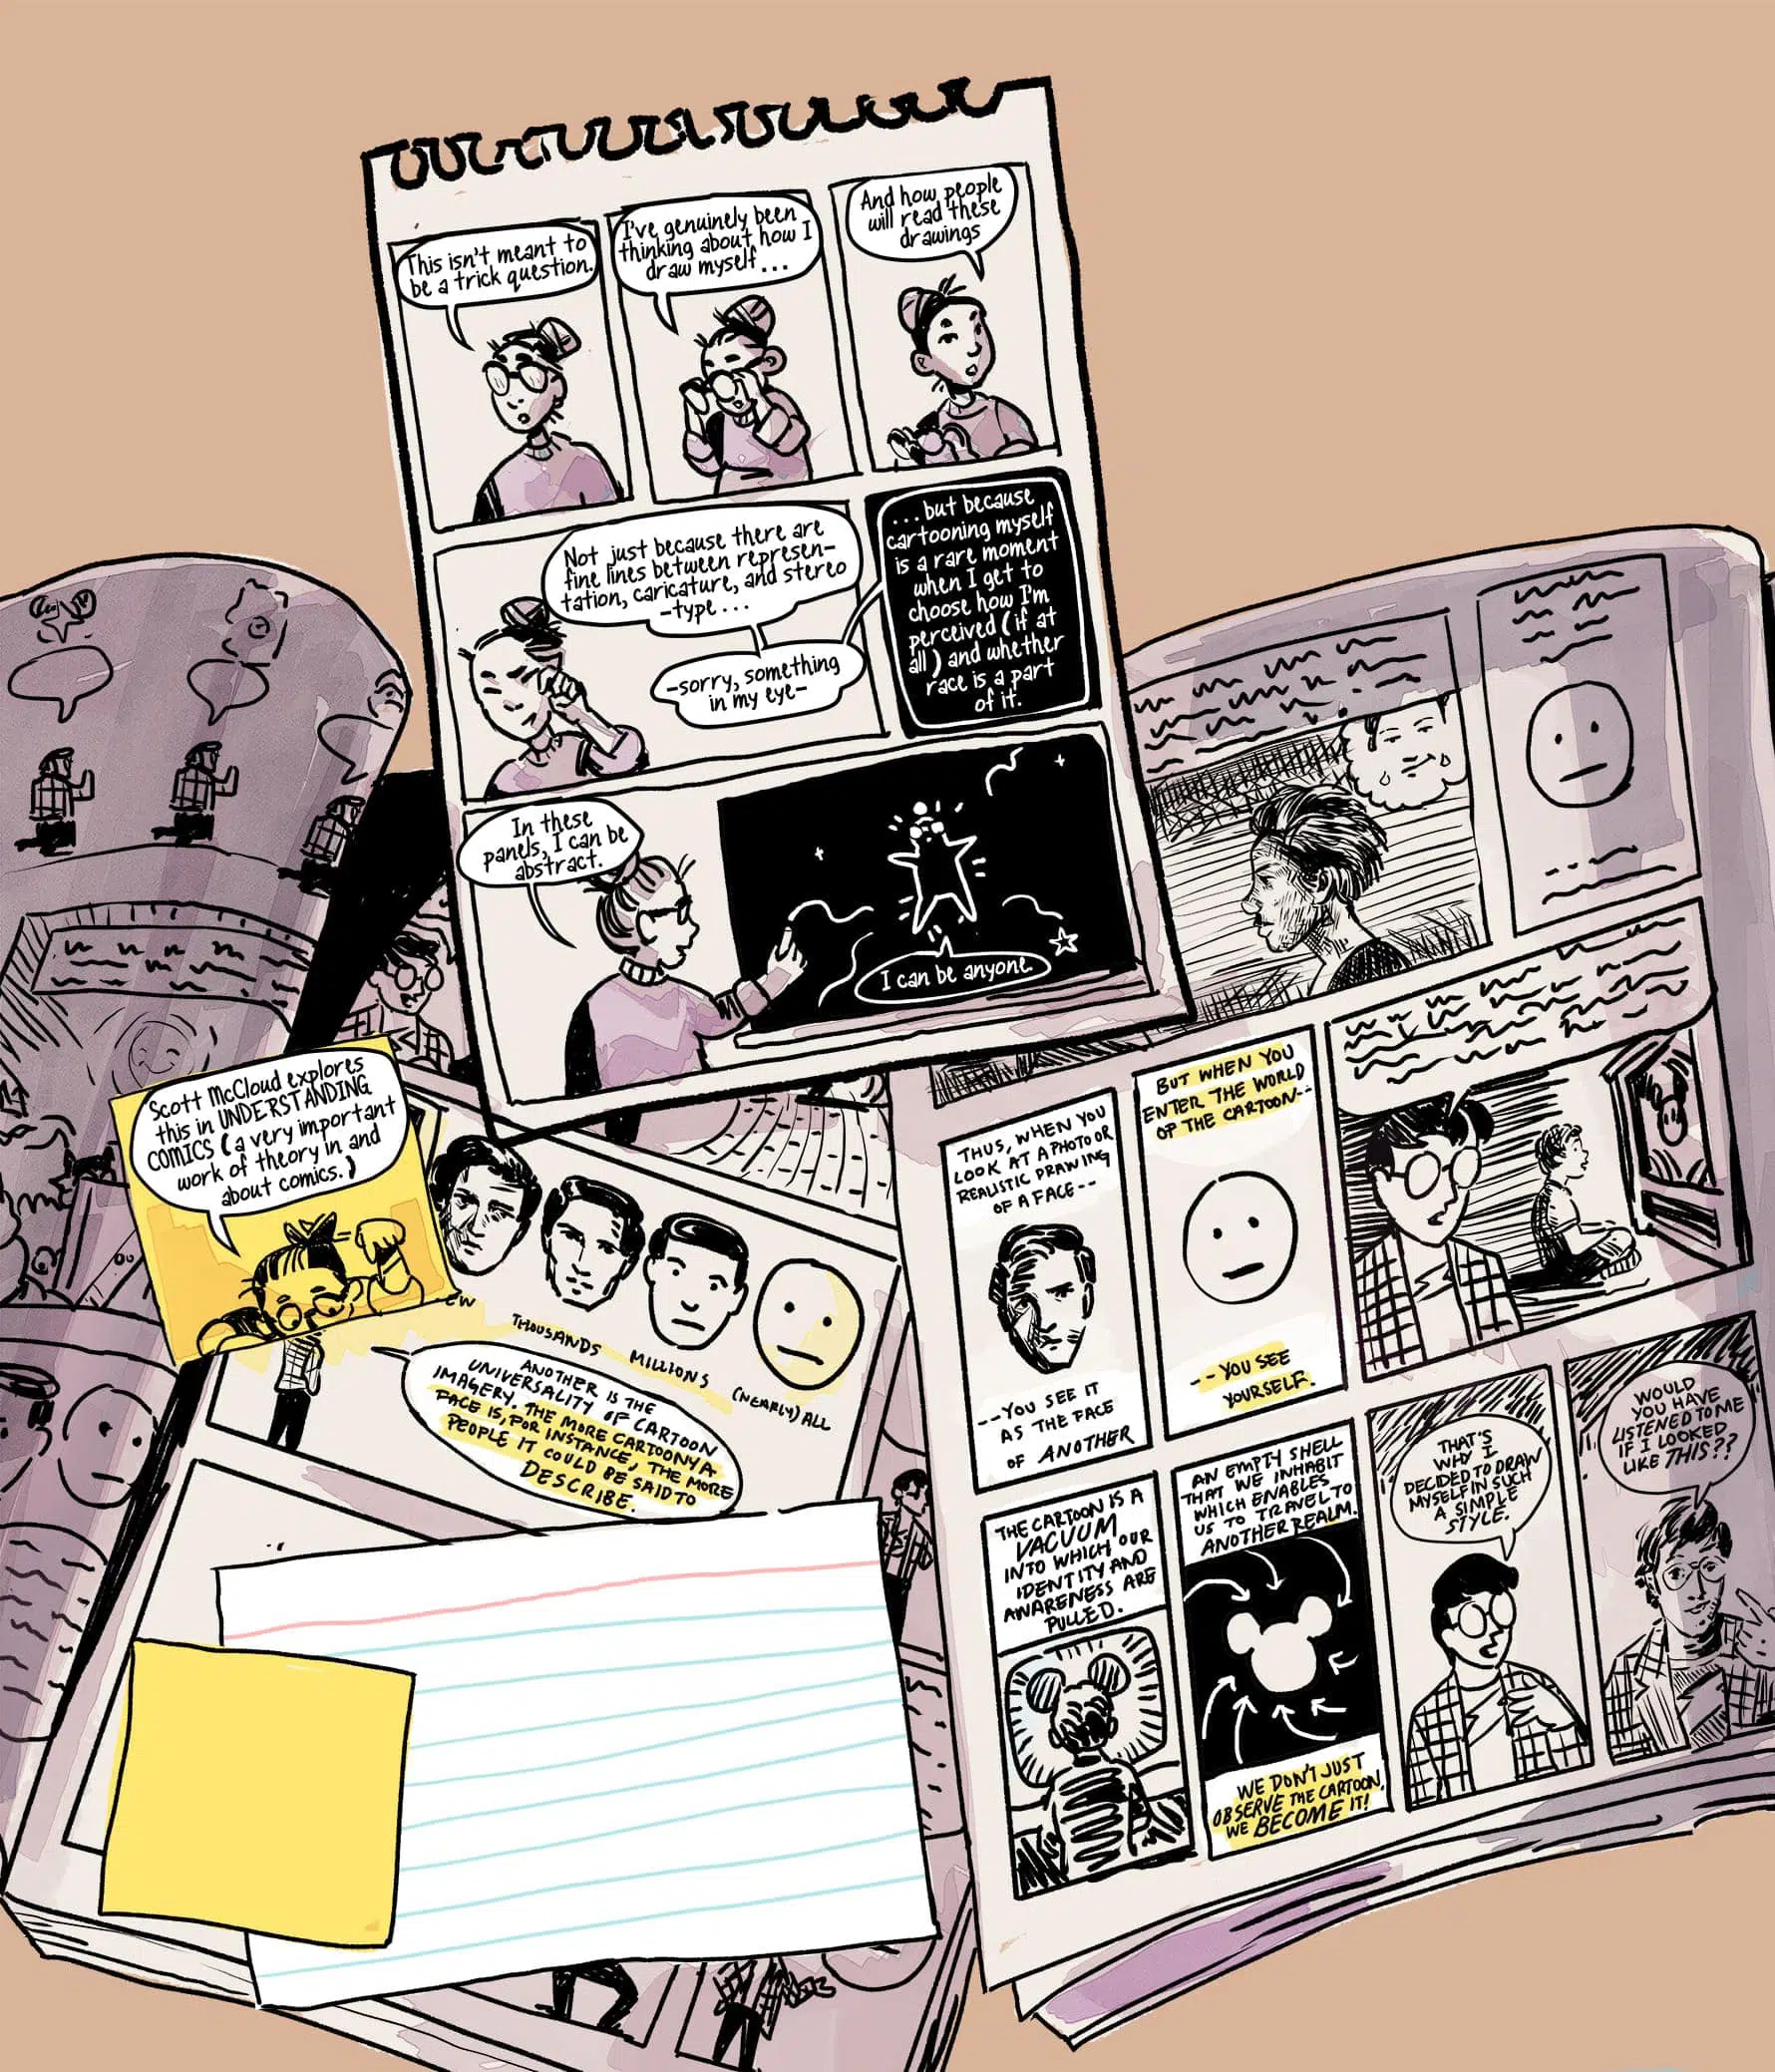 This isn't meant to
be a trick question.
I've genuinely been
thinking about how I
draw myself...
And how people
will read these
drawings
Not just because there are
fine lines between represen-
tation, caricature, and stereo
-type...
-sorry, something
in my eye-
...but because
cartooning myself
is a rare moment
when I get to
choose how I'm
perceived (if at
all) and whether
race is a part
of it.
In these
panels, I can be
abstract.
I can be anyone.
Scott McCloud explores
this in UNDERSTANDING
COMICS (a very important
work of theory in and
about comics.)
THOUSANDS
MILLIONS
(NEARLY) ALL
ANOTHER IS THE
UNIVERSALITY OF CARTOON
IMAGERY. THE MORE CARTOONY A
FACE IS, FOR INSTANCE, THE MORE
PEOPLE IT COULD BE SAID TO
DESCRIBE.
THUS, WHEN YOU
LOOK AT A PHOTO OR
REALISTIC DRAWING
OF A FACE--
--YOU SEE IT
AS THE FACE
OF ANOTHER
BUT WHEN YOU
ENTER THE WORLD
OF THE CARTOON--
--YOU SEE
YOURSELF.
THE CARTOON IS A
VACUUM
INTO WHICH OUR
IDENTITY AND
AWARENESS ARE
PULLED.
AN EMPTY SHELL
THAT WE INHABIT
WHICH ENABLES
US TO TRAVEL TO
ANOTHER REALM.
WE DON'T JUST
OBSERVE THE CARTOON,
WE BECOME IT!
THAT'S
WHY I
DECIDED TO DRAW
MYSELF IN SUCH
A SIMPLE
STYLE.
WOULD
YOU HAVE
LISTENED TO ME
IF I LOOKED
LIKE THIS??